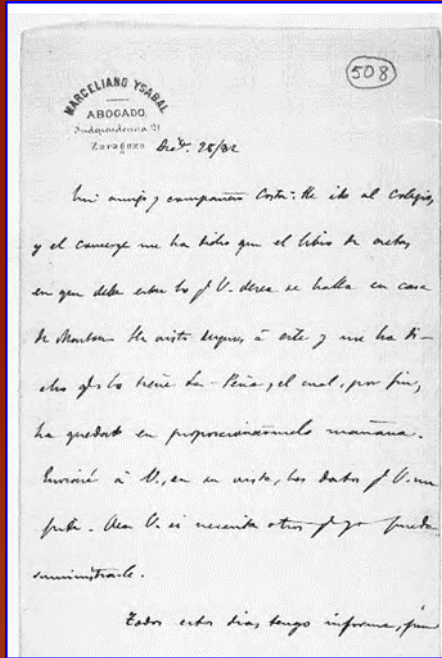 508
MARCELIANO YSABAL
ABOGADO.
Independencia 21
Zaragoza
Dic. 28/82
Mi amigo y compañero Costa: He ido al Colegio,
y el conserge me ha dicho que el libro de actas
en que debe estar lo q V. desea se halla en casa
de He visto despues á este y me ha di-
cho q lo tiene La-Peña, el cual, por fin,
ha quedado en proporcionármelo mañana.
Enviaré á V., en su vista, los datos q V. me
pide. Vea V. si necesita otros q yo pueda
suministrarle.
Todos estos dias tengo informe,